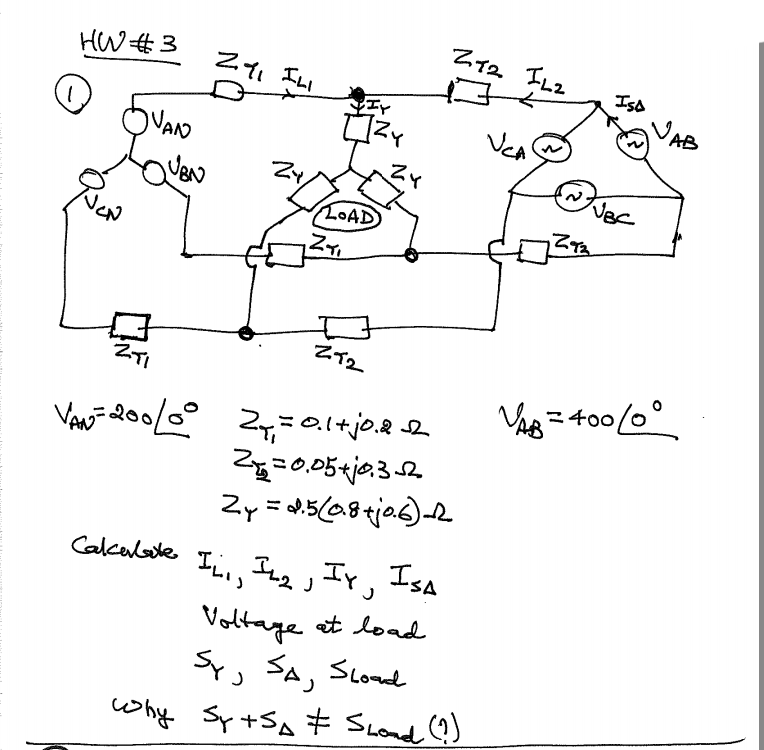 HW # 3
Z_T1 I_L1 Z_T2 I_L2
① I_Y I_SΔ
V_AN Z_Y V_CA V_AB
V_CN V_BN Z_Y Z_Y V_BC
LOAD
Z_T1 Z_T2
Z_T1 Z_T2
V_AN = 200∠0° Z_T1 = 0.1+j0.2 Ω V_AB = 400∠0°
Z_T2 = 0.05+j0.3 Ω
Z_Y = 2.5(0.8+j0.6) Ω
Calculate I_L1, I_L2, I_Y, I_SΔ
Voltage at load
S_Y, S_Δ, S_Load
Why S_Y + S_Δ ≠ S_Load (?)